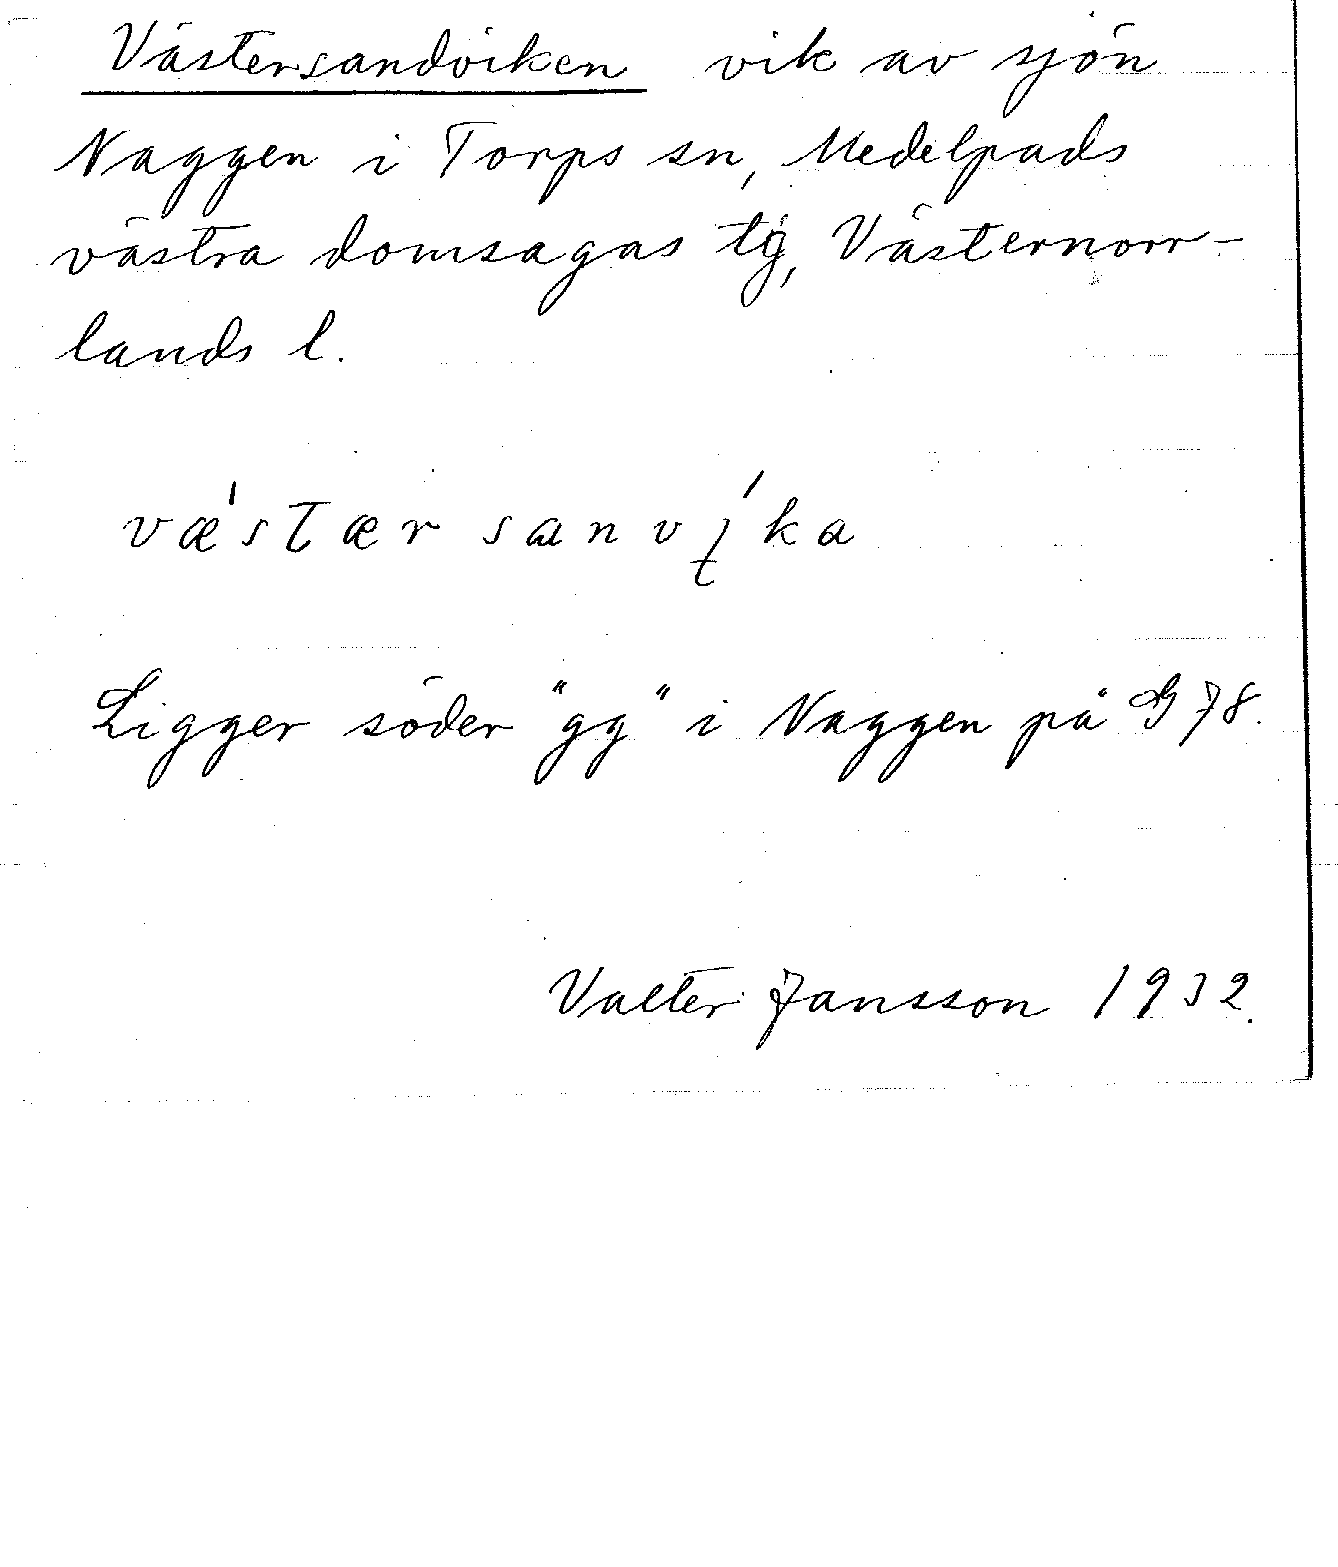 Västersandviken vik av sjön
Naggen i Torps sn, Medelpads
västra domsagas tg, Västernorr-
lands l.
Ligger söder "gg" i Naggen på G 78.
Valter Jansson 1932.